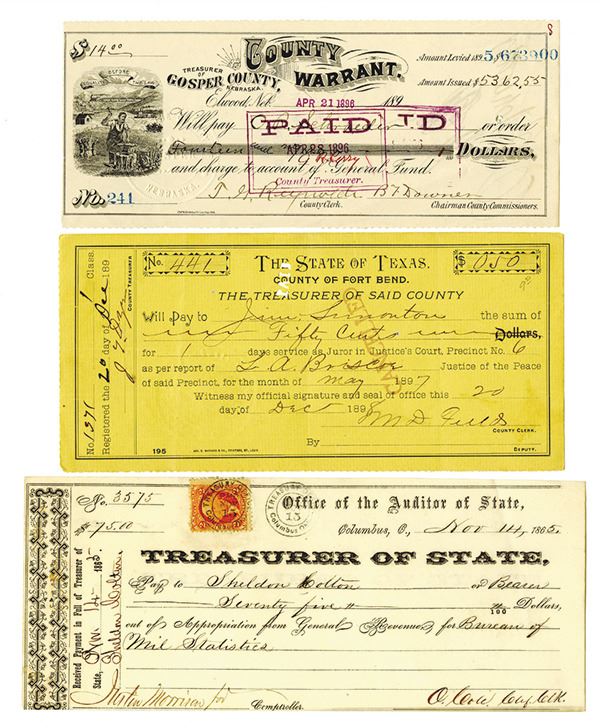 $ 14.00
COUNTY WARRANT.
TREASURER OF GOSPER COUNTY, NEBRASKA.
Amount Levied 189 5,673900
Amount Issued $ 5362,55
OXFORD
Elwood, Neb. APR 21 1896 189
Will pay or order
Fourteen and DOLLARS,
and charge to account of General Fund.
PAID
APR 28 1896
County Treasurer.
NEBRASKA
No. 241
County Clerk.
B F Downer
Chairman County Commissioners.
Class.
COUNTY TREASURER
Registered the 20 day of Dec 189
No. 1371
No. 441
THE STATE OF TEXAS.
$ 050
COUNTY OF FORT BEND.
THE TREASURER OF SAID COUNTY
Will Pay to Jim Simonton the sum of
Fifty Cents Dollars,
for 1 days service as Juror in Justice's Court, Precinct No. 6
as per report of L A Briscoe Justice of the Peace
of said Precinct, for the month of May 1897
Witness my official signature and seal of office this 20
day of Dec 189
M D Fields
COUNTY CLERK.
By
DEPUTY.
195
No. 3575
$ 75.00
Office of the Auditor of State,
Columbus, O., Nov 14, 1865.
TREASURER OF STATE,
Pay to Sheldon Colton or Bearer
Seventy five 100 Dollars,
out of Appropriation from General Revenue, for Bureau of
Mil Statistics
Received Payment in Full of Treasurer of
State, Nov. 14 1865
Sheldon Colton
Comptroller.